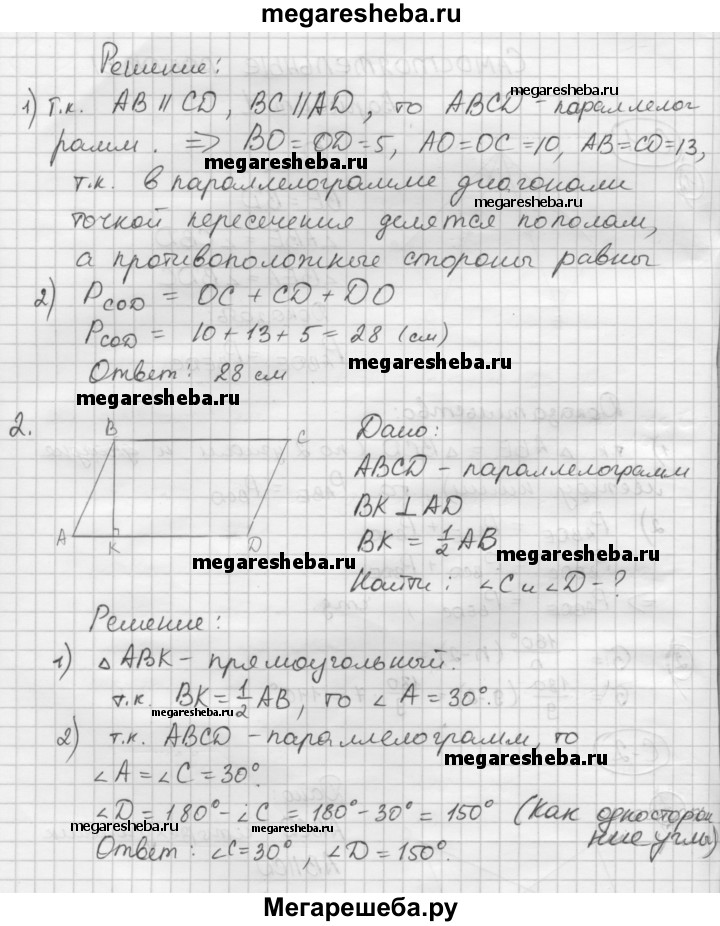 megaresheba.ru
Решение:
1) т.к. AB // CD, BC // AD, то ABCD - параллелог
megaresheba.ru
рамм. => BO = OD = 5, AO = OC = 10, AB = CD = 13,
megaresheba.ru
т.к. в параллелограмме диагонали
megaresheba.ru
точкой пересечения делятся пополам,
а противоположные стороны равны
2) P_COD = OC + CD + DO
P_COD = 10 + 13 + 5 = 28 (см)
megaresheba.ru
Ответ: 28 см
megaresheba.ru
2.
B C
A K D
Дано:
ABCD - параллелограмм
BK ⊥ AD
BK = 1/2 AB
megaresheba.ru
megaresheba.ru
Найти: ∠C и ∠D - ?
Решение:
1) △ ABK - прямоугольный.
т.к. BK = 1/2 AB, то ∠A = 30°.
megaresheba.ru
2) т.к. ABCD - параллелограмм, то
megaresheba.ru
∠A = ∠C = 30°.
∠D = 180° - ∠C = 180° - 30° = 150° (как односторон
megaresheba.ru
megaresheba.ru
ние углы)
Ответ: ∠C = 30°, ∠D = 150°.
Мегарешеба.ру